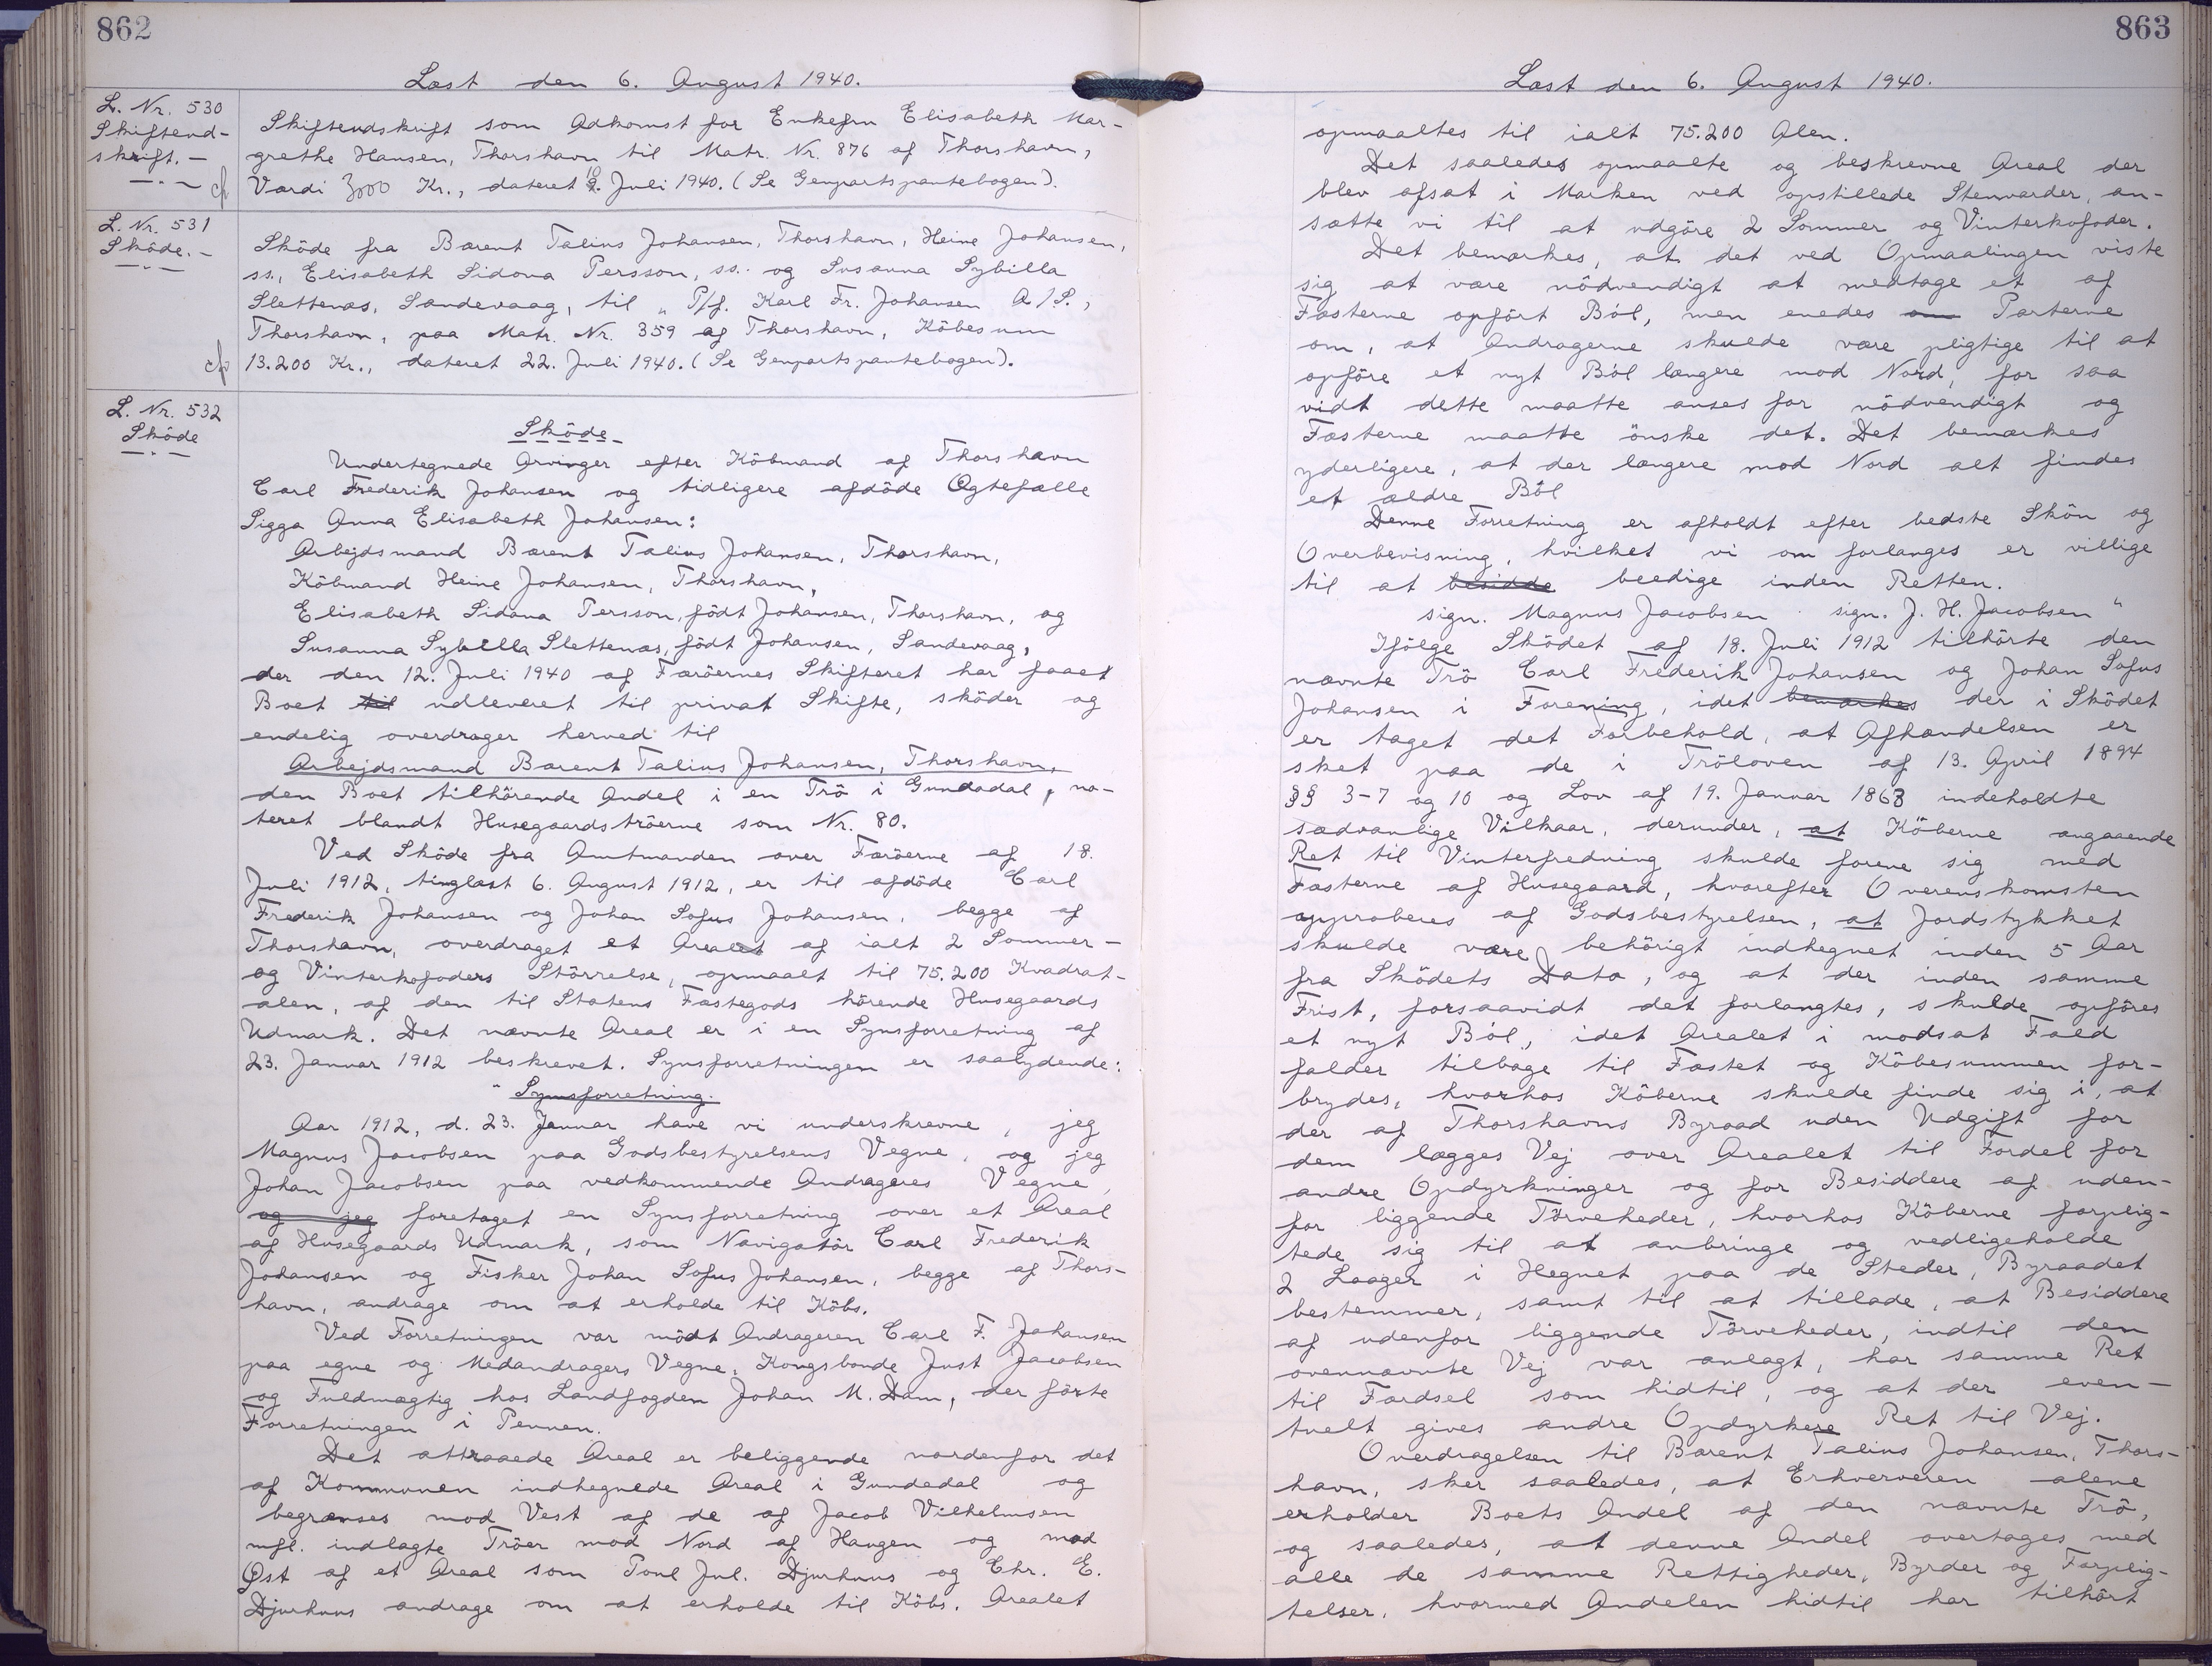 862
Læst den 6. August 1940.
L. Nr. 530
Skiftend-
skrift. -
Skifteudskrift som Adkomst for Enkefru Elisabeth Mar-
grethe Hansen, Thorshavn til Matr. Nr. 876 af Thorshavn,
Værdi 3000 Kr., dateret 10. Juli 1940. (Se Genpartspantebogen).
L. Nr. 531
Sköde. -
Sköde fra Barent Talius Johansen, Thorshavn, Heine Johansen,
ss., Elisabeth Sidona Persson, ss. og Susanna Sybilla
Slettenæs, Sandevaag, til „ P/f. Karl Fr. Johansen A/S.,
Thorshavn, paa Matr. Nr. 359 af Thorshavn, Köbesum
13.200 Kr., dateret 22. Juli 1940. (Se Genpartspantebogen).
L. Nr. 532
Sköde
Sköde
Undertegnede Arvinger efter Köbmand af Thorshavn
Carl Frederik Johansen og tidligere afdöde Ægtefælle
Sigga Anna Elisabeth Johansen:
Arbejdsmand Barent Talius Johansen, Thorshavn,
Köbmand Heine Johansen, Thorshavn,
Elisabeth Sidona Persson, födt Johansen, Thorshavn, og
Susanna Sybilla Slettenæs, födt Johansen, Sandevaag,
der den 12. Juli 1940 af Færöernes Skifteret har faaet
Boet til udleveret til privat Skifte, sköder og
endelig overdrager herved til
Arbejdsmand Barent Talius Johansen, Thorshavn,
den Boet tilhörende Andel i en Trö i Gundadal, no-
teret blandt Husegaardströerne som Nr. 80.
Ved Sköde fra Amtmanden over Færöerne af 18.
Juli 1912, tinglæst 6. August 1912, er til afdöde Carl
Frederik Johansen og Johan Sofus Johansen, begge af
Thorshavn, overdraget et Arealet af ialt 2 Sommer-
og Vinterkofoders Störrelse, opmaalt til 75.200 Kvadrat-
alen, af den til Statens Fæstegods hörende Husegaards
Udmark. Det nævnte Areal er i en Synsforretning af
23. Januar 1912 beskrevet. Synsforretningen er saalydende:
" Synsforretning.
Aar 1912, d. 23. Januar have vi underskrevne, jeg
Magnus Jacobsen paa Godsbestyrelsens Vegne, og jeg
Johan Jacobsen paa vedkommende Andrageres Vegne,
og jeg foretaget en Synsforretning over et Areal
af Husegaards Udmark, som Navigatör Carl Frederik
Johansen og Fisker Johan Sofus Johansen, begge af Thors-
havn, andrage om at erholde til Köbs.
Ved Forretningen var mödt Andrageren Carl F. Johansen
paa egne og Medandragers Vegne, Kongsbonde Just Jacobsen
og Fuldmægtig hos Landfogden Johan M. Dam, der förte
Forretningen i Pennen.
Det attraaede Areal er beliggende nordenfor det
af Kommunen indhegnede Areal i Gundedal og
begrænses mod Vest af de af Jacob Vilhelmsen
mfl. indlagte Tröer mod Nord af Haugen og mod
Øst af et Areal som Poul Jul. Djurhuus og Chr. E.
Djurhuus andrage om at erholde til Köbs. Arealet
863
Læst den 6. August 1940.
opmaaltes til ialt 75.200 Alen.
Det saaledes opmaalte og beskrevne Areal der
blev afsat i Marken ved opstillede Stenvarder, an-
sætte vi til at udgöre 2 Sommer og Vinterkofoder.
Det bemærkes, at det ved Opmaalingen viste
sig at være nödvendigt at medtage et af
Fæsterne opfört Ból, men enedes om Parterne
om, at Andragerne skulde være pligtige til at
opföre et nyt Ból længere mod Nord, for saa
vidt dette maatte anses for nödvendigt og
Fæsterne maatte önske det. Det bemærkes
yderligere, at der længere mod Nord alt findes
et ældre Ból
Denne Forretning er afholdt efter bedste Skön og
Overbevisning, hvilket vi om forlanges er villige
til at besidde beedige inden Retten.
sign. Magnus Jacobsen sign. J. H. Jacobsen "
Ifölge Sködet af 18. Juli 1912 tilhörte den
nævnte Trö Carl Frederik Johansen og Johan Sofus
Johansen i Forening, idet bemærkes der i Sködet
er taget det Forbehold, at Afhændelsen er
sket paa de i Tröloven af 13. April 1894
§§ 3-7 og 10 og Lov af 19. Januar 1863 indeholdte
sædvanlige Vilkaar, derunder, at Köberne angaaende
Ret til Vinterfredning skulde forene sig med
Fæsterne af Husegaard, hvorefter Overenskomsten
approberes af Godsbestyrelsen, at Jordstykket
skulde være behörigt indhegnet inden 5 Aar
fra Sködets Dato, og at der inden samme
Frist, forsaavidt det forlangtes, skulde opföres
et nyt Ból, idet Arealet i modsat Fald
falder tilbage til Fæstet og Köbesummen for-
brydes, hvorhos Köberne skulde finde sig i, at
der af Thorshavns Byraad uden Udgift for
dem lægges Vej over Arealet til Fordel for
andre Opdyrkninger og for Besiddere af uden-
for liggende Törveheder, hvorhos Köberne forplig-
tede sig til at anbringe og vedligeholde
2 Laager i Hegnet paa de Steder, Byraadet
bestemmer, samt til at tillade, at Besiddere
af udenfor liggende Törveheder, indtil den
ovennævnte Vej var anlagt, har samme Ret
til Færdsel som hidtil, og at der even-
tuelt gives andre Opdyrkere Ret til Vej.
Overdragelsen til Barent Talius Johansen, Thors-
havn, sker saaledes, at Erhververen alene
erholder Boets Andel af den nævnte Trö,
og saaledes, at denne Andel overtages med
alle de samme Rettigheder, Byrder og Forplig-
telser, hvormed Andelen hidtil har tilhört